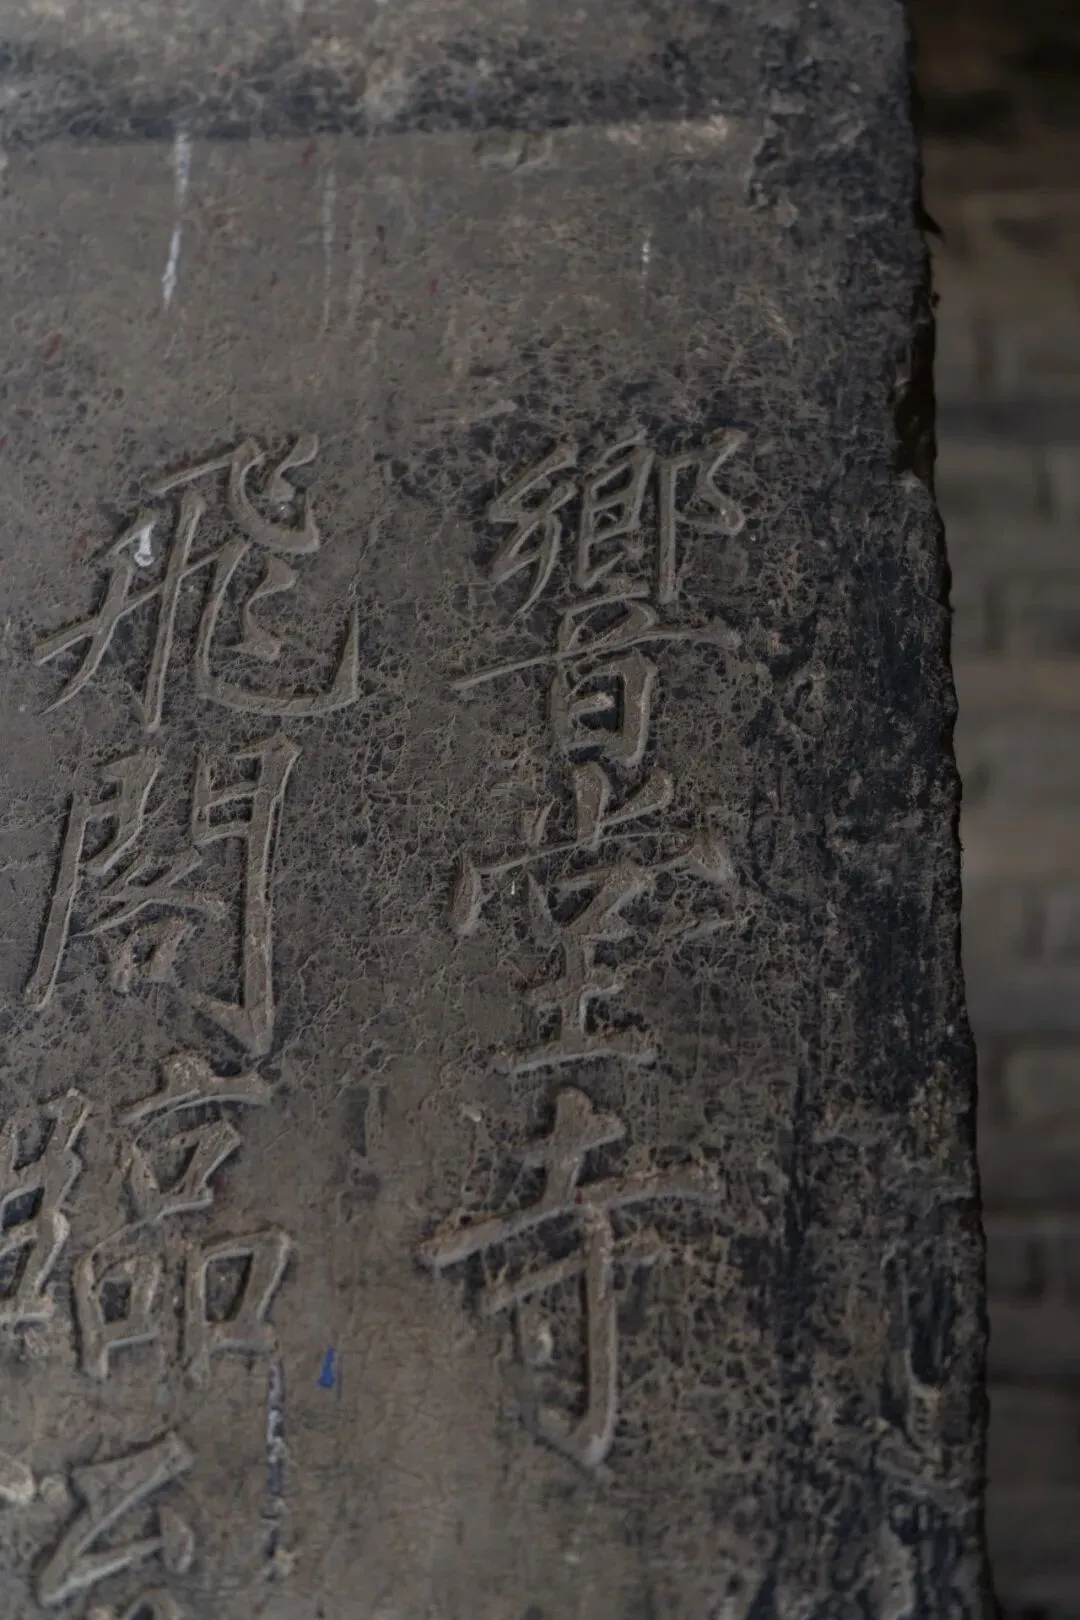 響堂寺
飛閣臨